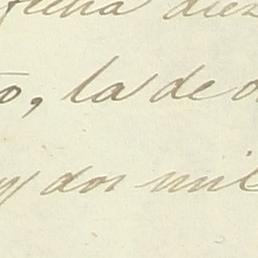 fecha diez
o, la de o
y dos mil